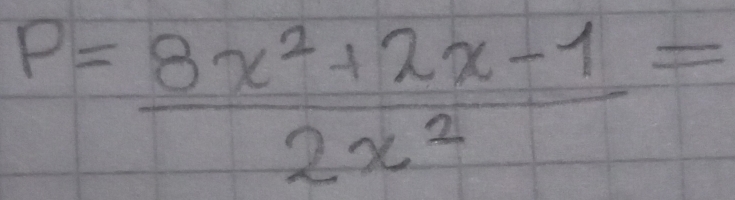 P = \frac{8x^2+2x-1}{2x^2} =